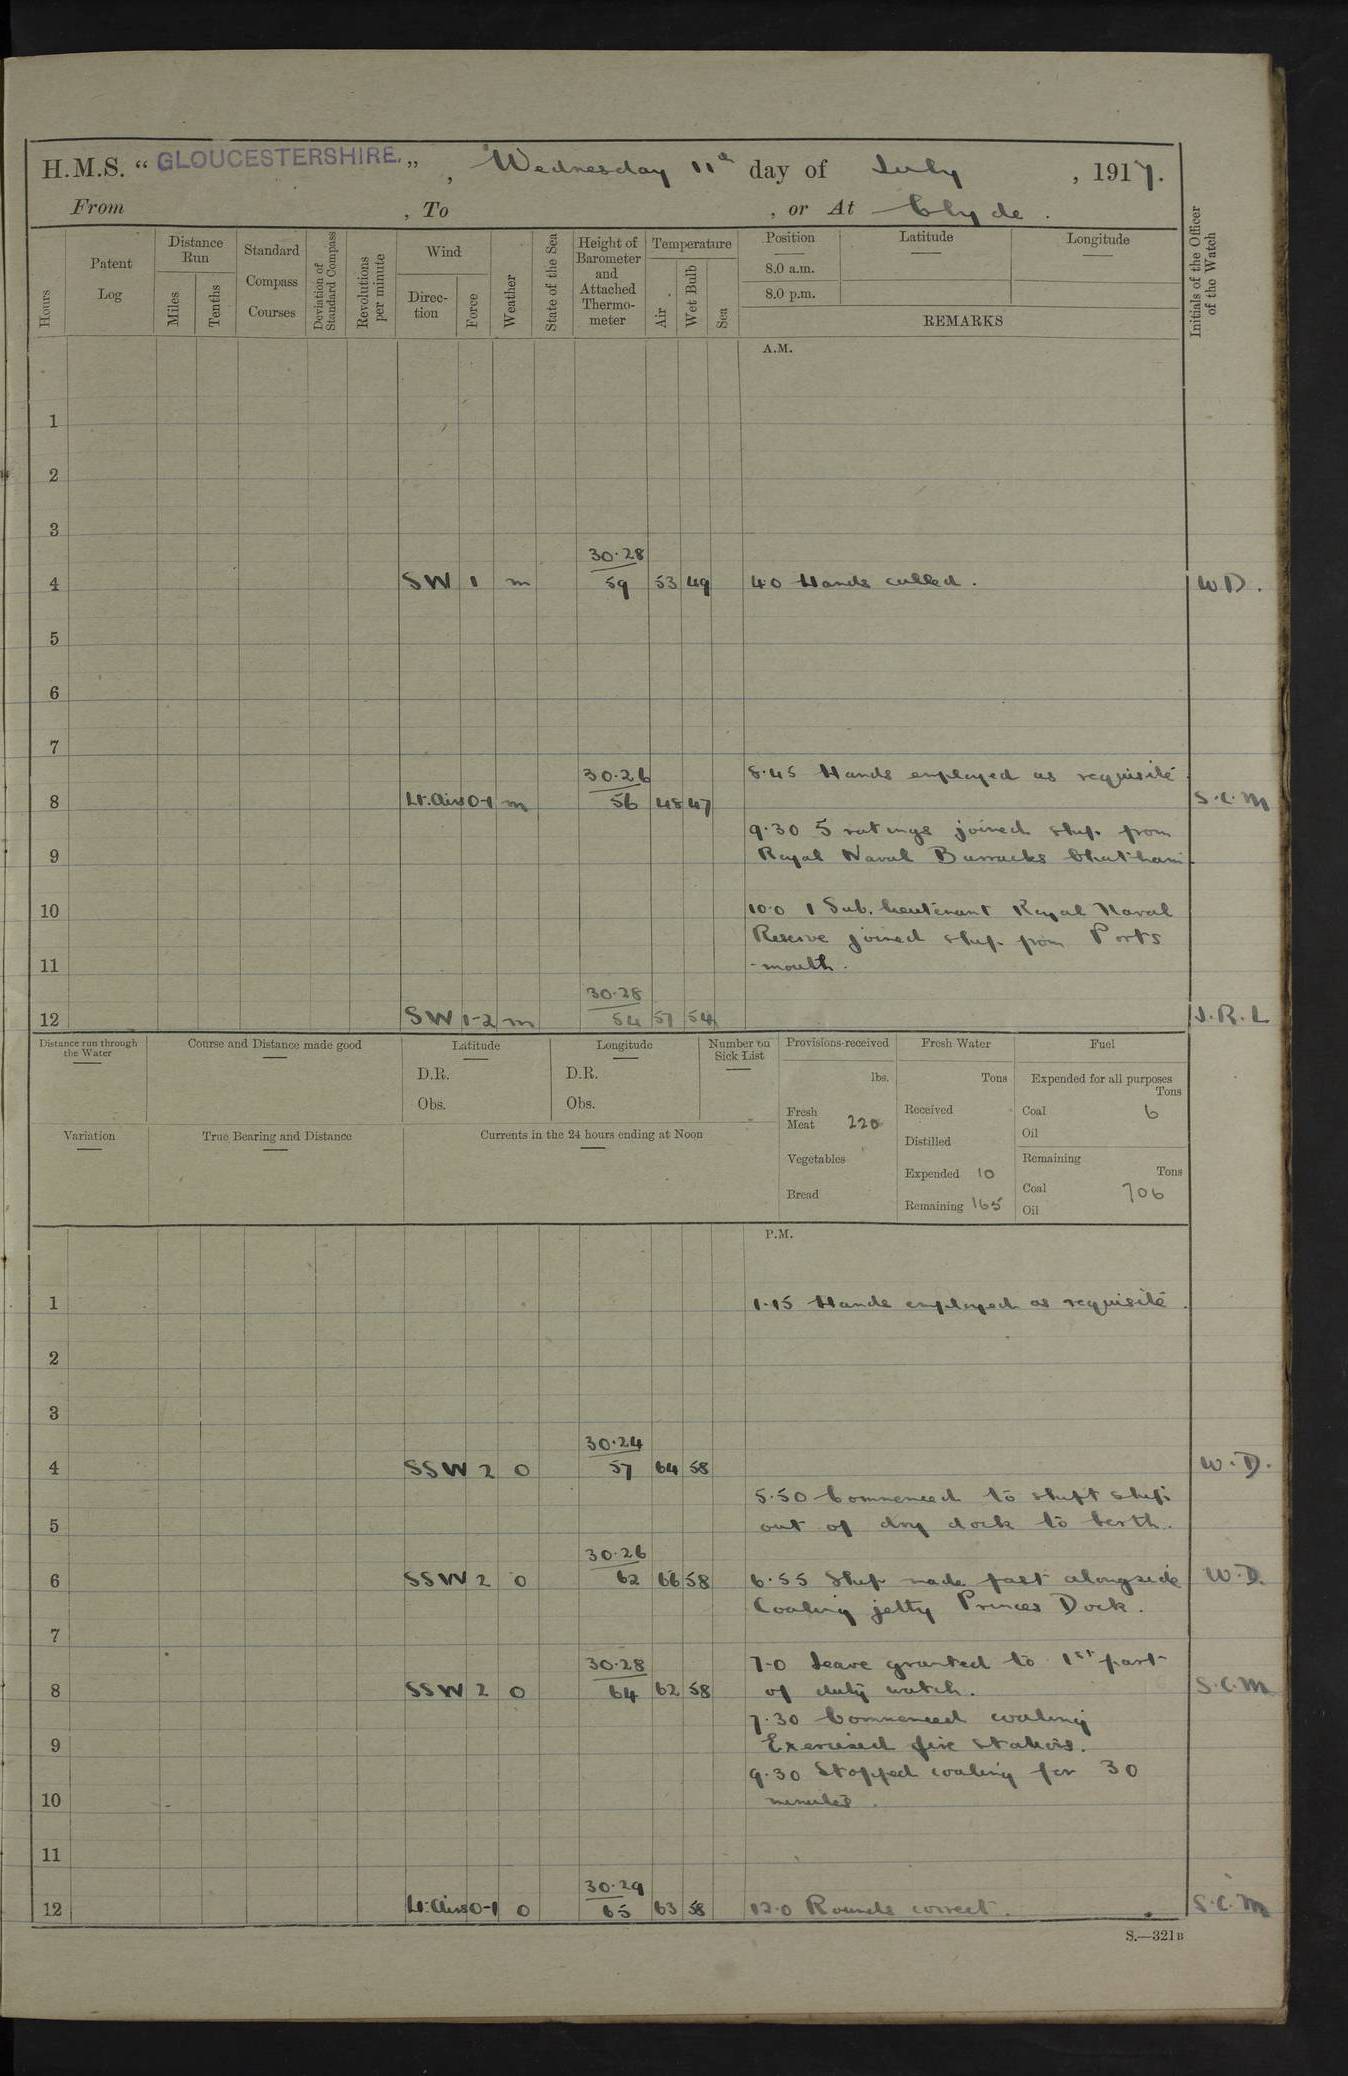 H.M.S. “ GLOUCESTERSHIRE. „ , Wednesday 11th day of July , 1917.
From , To , or At Clyde .
Hours
Patent Log
Distance Run
Miles
Tenths
Standard Compass Courses
Deviation of Standard Compass
Revolutions per minute
Wind
Direc- tion
Force
Weather
State of the Sea
Height of Barometer and Attached Thermo- meter
Temperature
Air
Wet Bulb
Sea
Position Latitude Longitude
8.0 a.m.
8.0 p.m.
REMARKS
Initials of the Officer of the Watch
A.M.
1
2
3
30.28
4 SW 1 m 59 53 49 4.0 Hands called . W.D.
5
6
7
30.26 8.45 Hands employed as requisite
8 Lt. Airs 0-1 m 56 48 47 S.C.M
9.30 5 ratings joined ship from
9 Royal Naval Barracks Chatham
10 10.0 1 Sub. Lieutenant Royal Naval
Reserve joined ship from Ports
11 -mouth.
30.28
12 SW 1-2 m 54 57 54 J.R.L
Distance run through the Water
Course and Distance made good
Latitude
D.R.
Obs.
Longitude
D.R.
Obs.
Number on Sick List
Provisions received
lbs.
Fresh Meat 220
Vegetables
Bread
Fresh Water
Tons
Received
Distilled
Expended 10
Remaining 165
Fuel
Expended for all purposes
Tons
Coal 6
Oil
Remaining
Tons
Coal 706
Oil
Variation
True Bearing and Distance
Currents in the 24 hours ending at Noon
P.M.
1 1.15 Hands employed as requisite .
2
3
30.24
4 SSW 2 o 57 64 58 W.D.
5.50 Commenced to shift ship
5 out of dry dock to berth.
30.26
6 SSW 2 o 62 66 58 6.55 Ship made fast alongside W.D.
Coaling jetty Princes Dock.
7
30.28 7.0 Leave granted to 1st part
8 SSW 2 o 64 62 58 of duty watch. S.C.M
7.30 Commenced coaling
9 Exercised fire stations.
9.30 Stopped coaling for 30
10 minutes .
11
30.29
12 Lt. Airs 0-1 o 65 63 58 12.0 Rounds correct . S.C.M
S.—321B